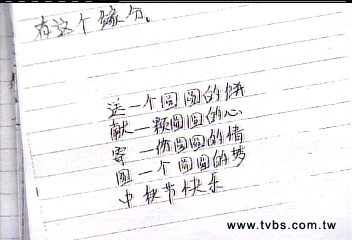 有这个缘分。
送一个圆圆的饼
献一颗圆圆的心
寄一份圆圆的情
圆一个圆圆的梦
中秋节快乐
www.tvbs.com.tw